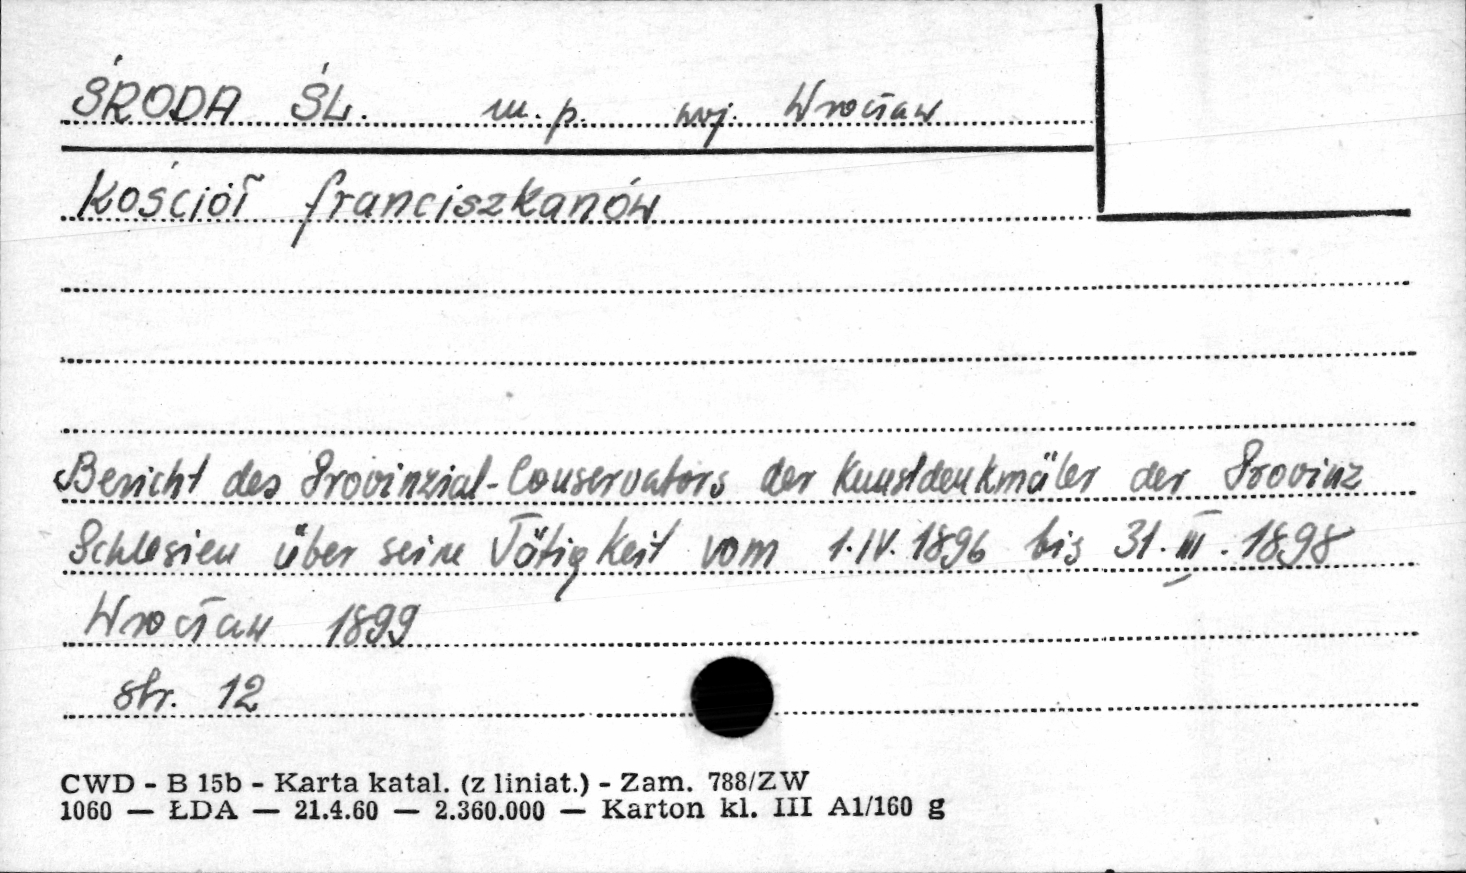 ŚRODA ŚL. m.p. woj. Wrocław
Kościół franciszkanów
Bericht des Provinzial-Conservators der Kunstdenkmäler der Provinz
Schlesien über seine Tätigkeit vom 1.IV.1896 bis 31.III.1898
Wrocław 1899
str. 12
CWD - B 15b - Karta katal. (z liniat.) - Zam. 788/ZW
1060 — ŁDA — 21.4.60 — 2.360.000 — Karton kl. III A1/160 g